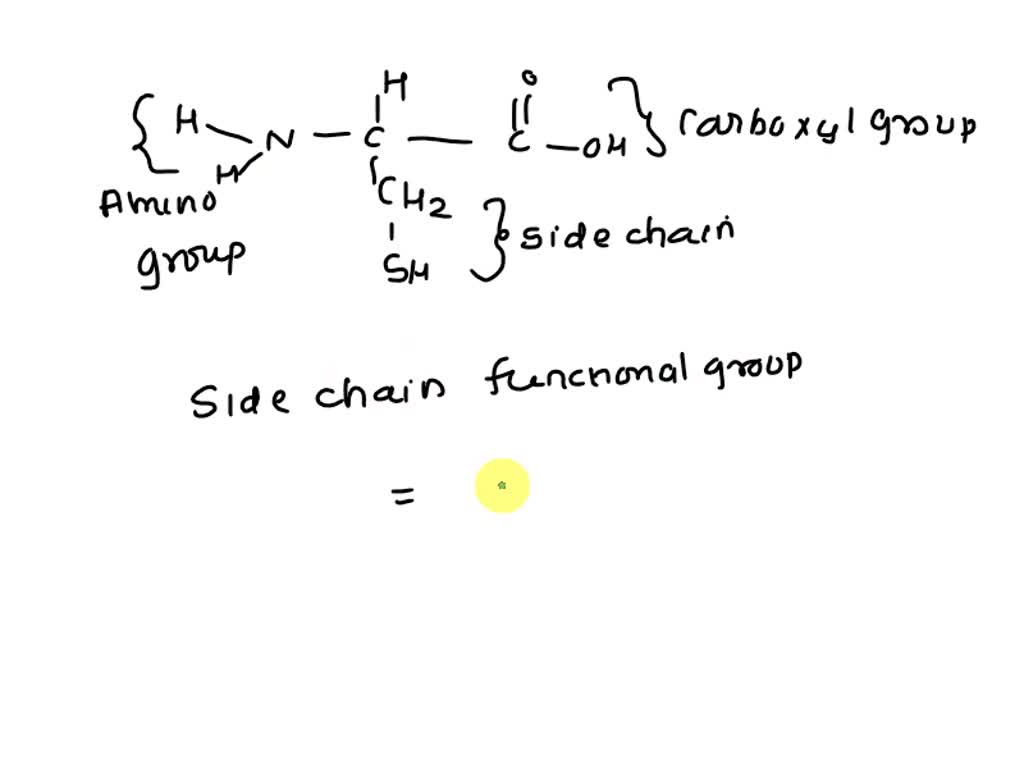 H O
{ H N — C — C — OH } Carboxyl group
H
Amino CH2
group SH } side chain
Side chain funcnonal group
=